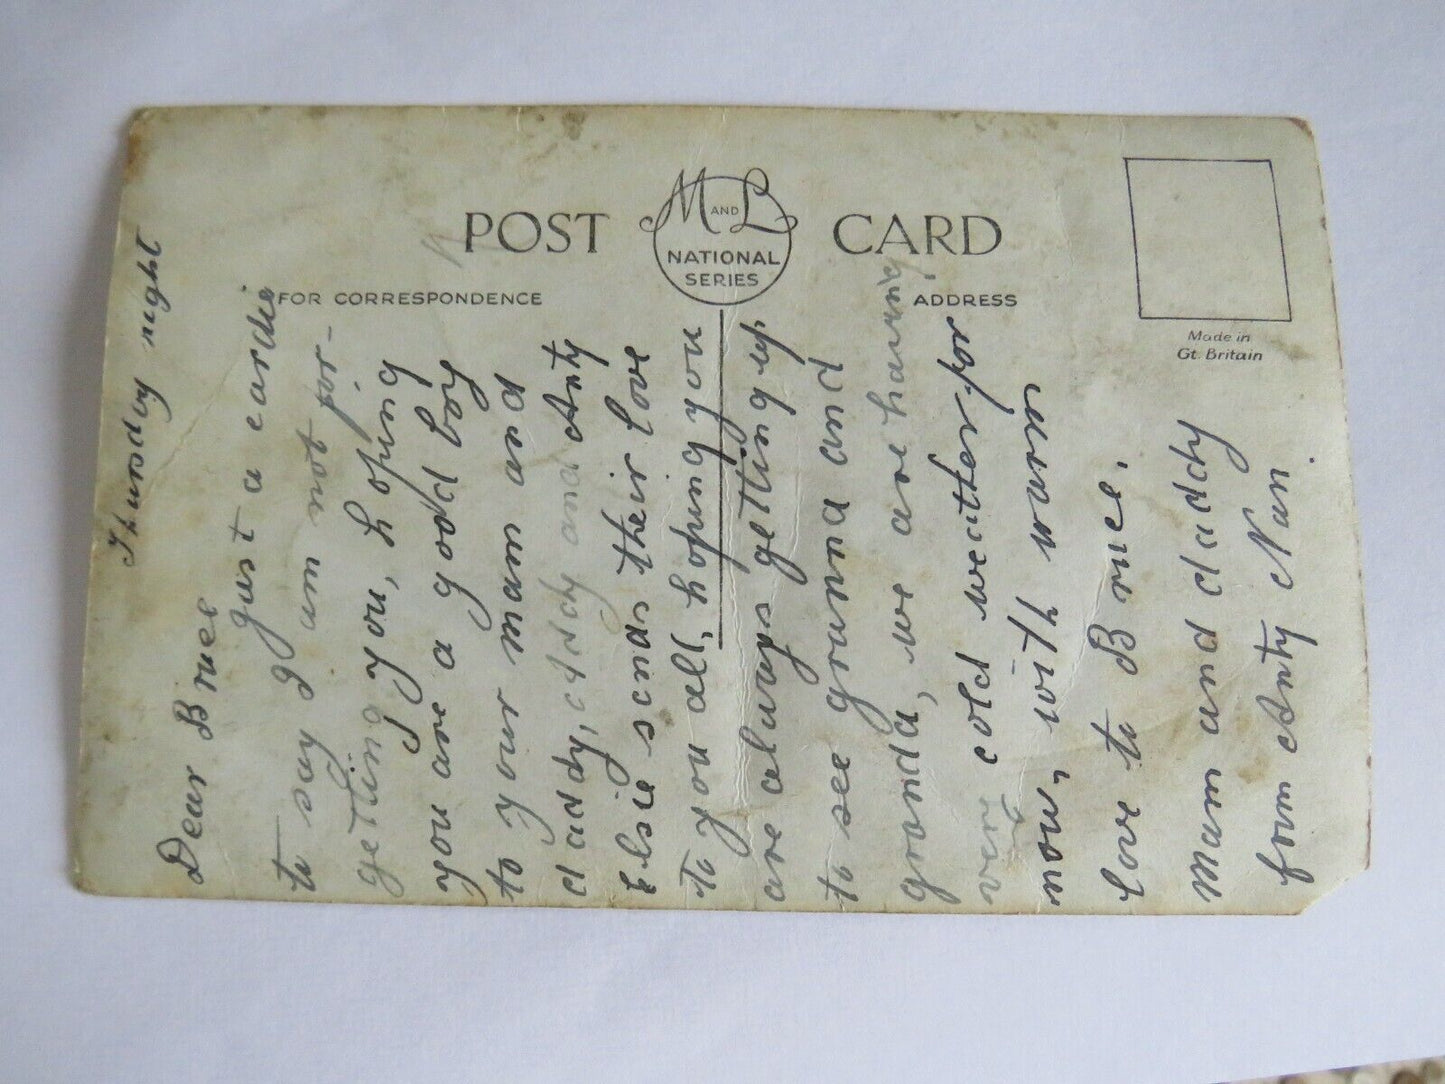 POST CARD
M AND L
NATIONAL
SERIES
FOR CORRESPONDENCE
ADDRESS
Made in
Gt. Britain
Thursday night
Dear Bruce
Just a cardie
to say I am not for-
getting you, hoping
you are a good boy
to your mam and
daddy, addy and Anty
Elsie sends their love
to you all, hoping you
are always getting up
to see granna and
granda, we are having
very cold weather for
now, with warm
love to Bruce.
Mam and daddy
from Anty Nan.